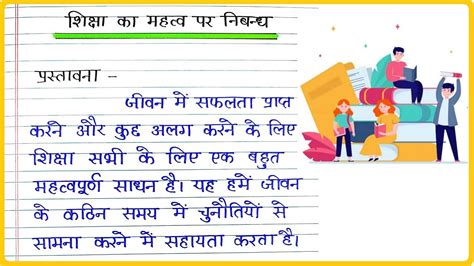 शिक्षा का महत्व पर निबन्ध
प्रस्तावना -
जीवन में सफलता प्राप्त
करने और कुछ अलग करने के लिए
शिक्षा सभी के लिए एक बहुत
महत्वपूर्ण साधन है। यह हमें जीवन
के कठिन समय में चुनौतियों से
सामना करने में सहायता करता है।